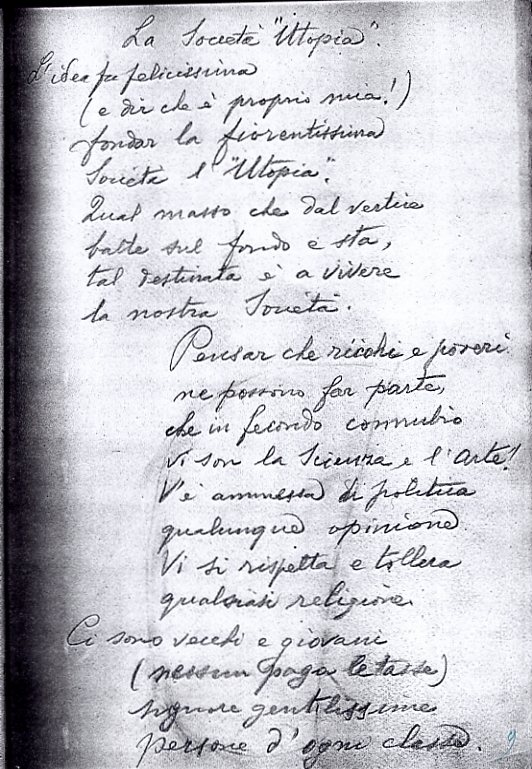 La Società "Utopia".
L'idea fu felicissima
(e dir che è proprio mia!)
fondar la fiorentissima
Società l'"Utopia".
Qual masso che dal vertice
batte sul fondo e sta,
tal destinata è a vivere
la nostra Società.
Pensar che ricchi e poveri
ne possono far parte,
che in fecondo connubio
vi son la Scienza e l'Arte!
V'è ammessa di politica
qualunque opinione
Vi si rispetta e tollera
qualsiasi religione.
Ci sono vecchi e giovani
(nessun paga le tasse)
signore gentilissime
persone d'ogni classe.
9